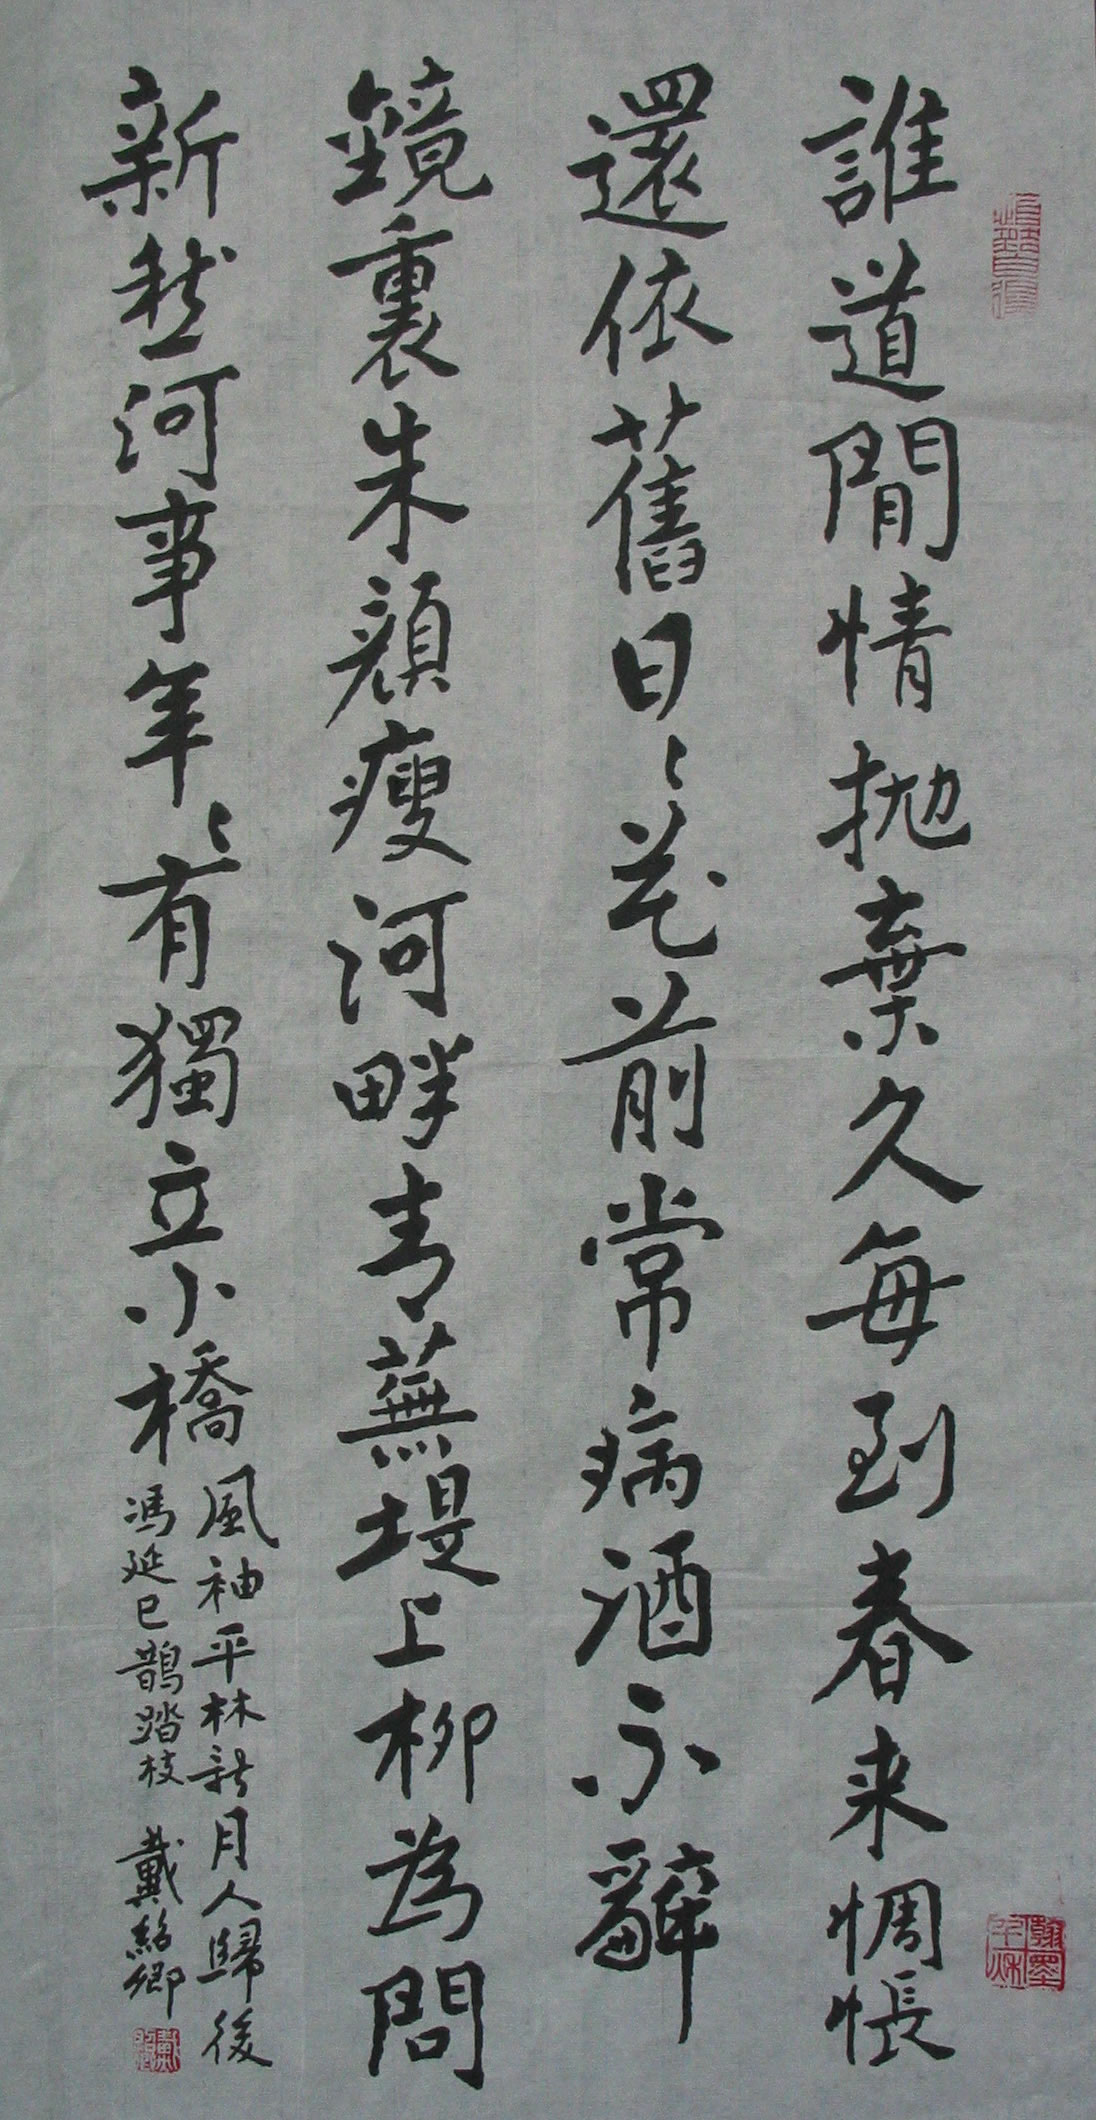 誰道閒情拋棄久每到春来惆悵
還依舊日々花前常病酒不辭
鏡裏朱顏瘦河畔青蕪堤上柳為問
新愁河事年々有獨立小橋
風袖平林新月人歸後
馮延巳鵲踏枝 戴紹卿